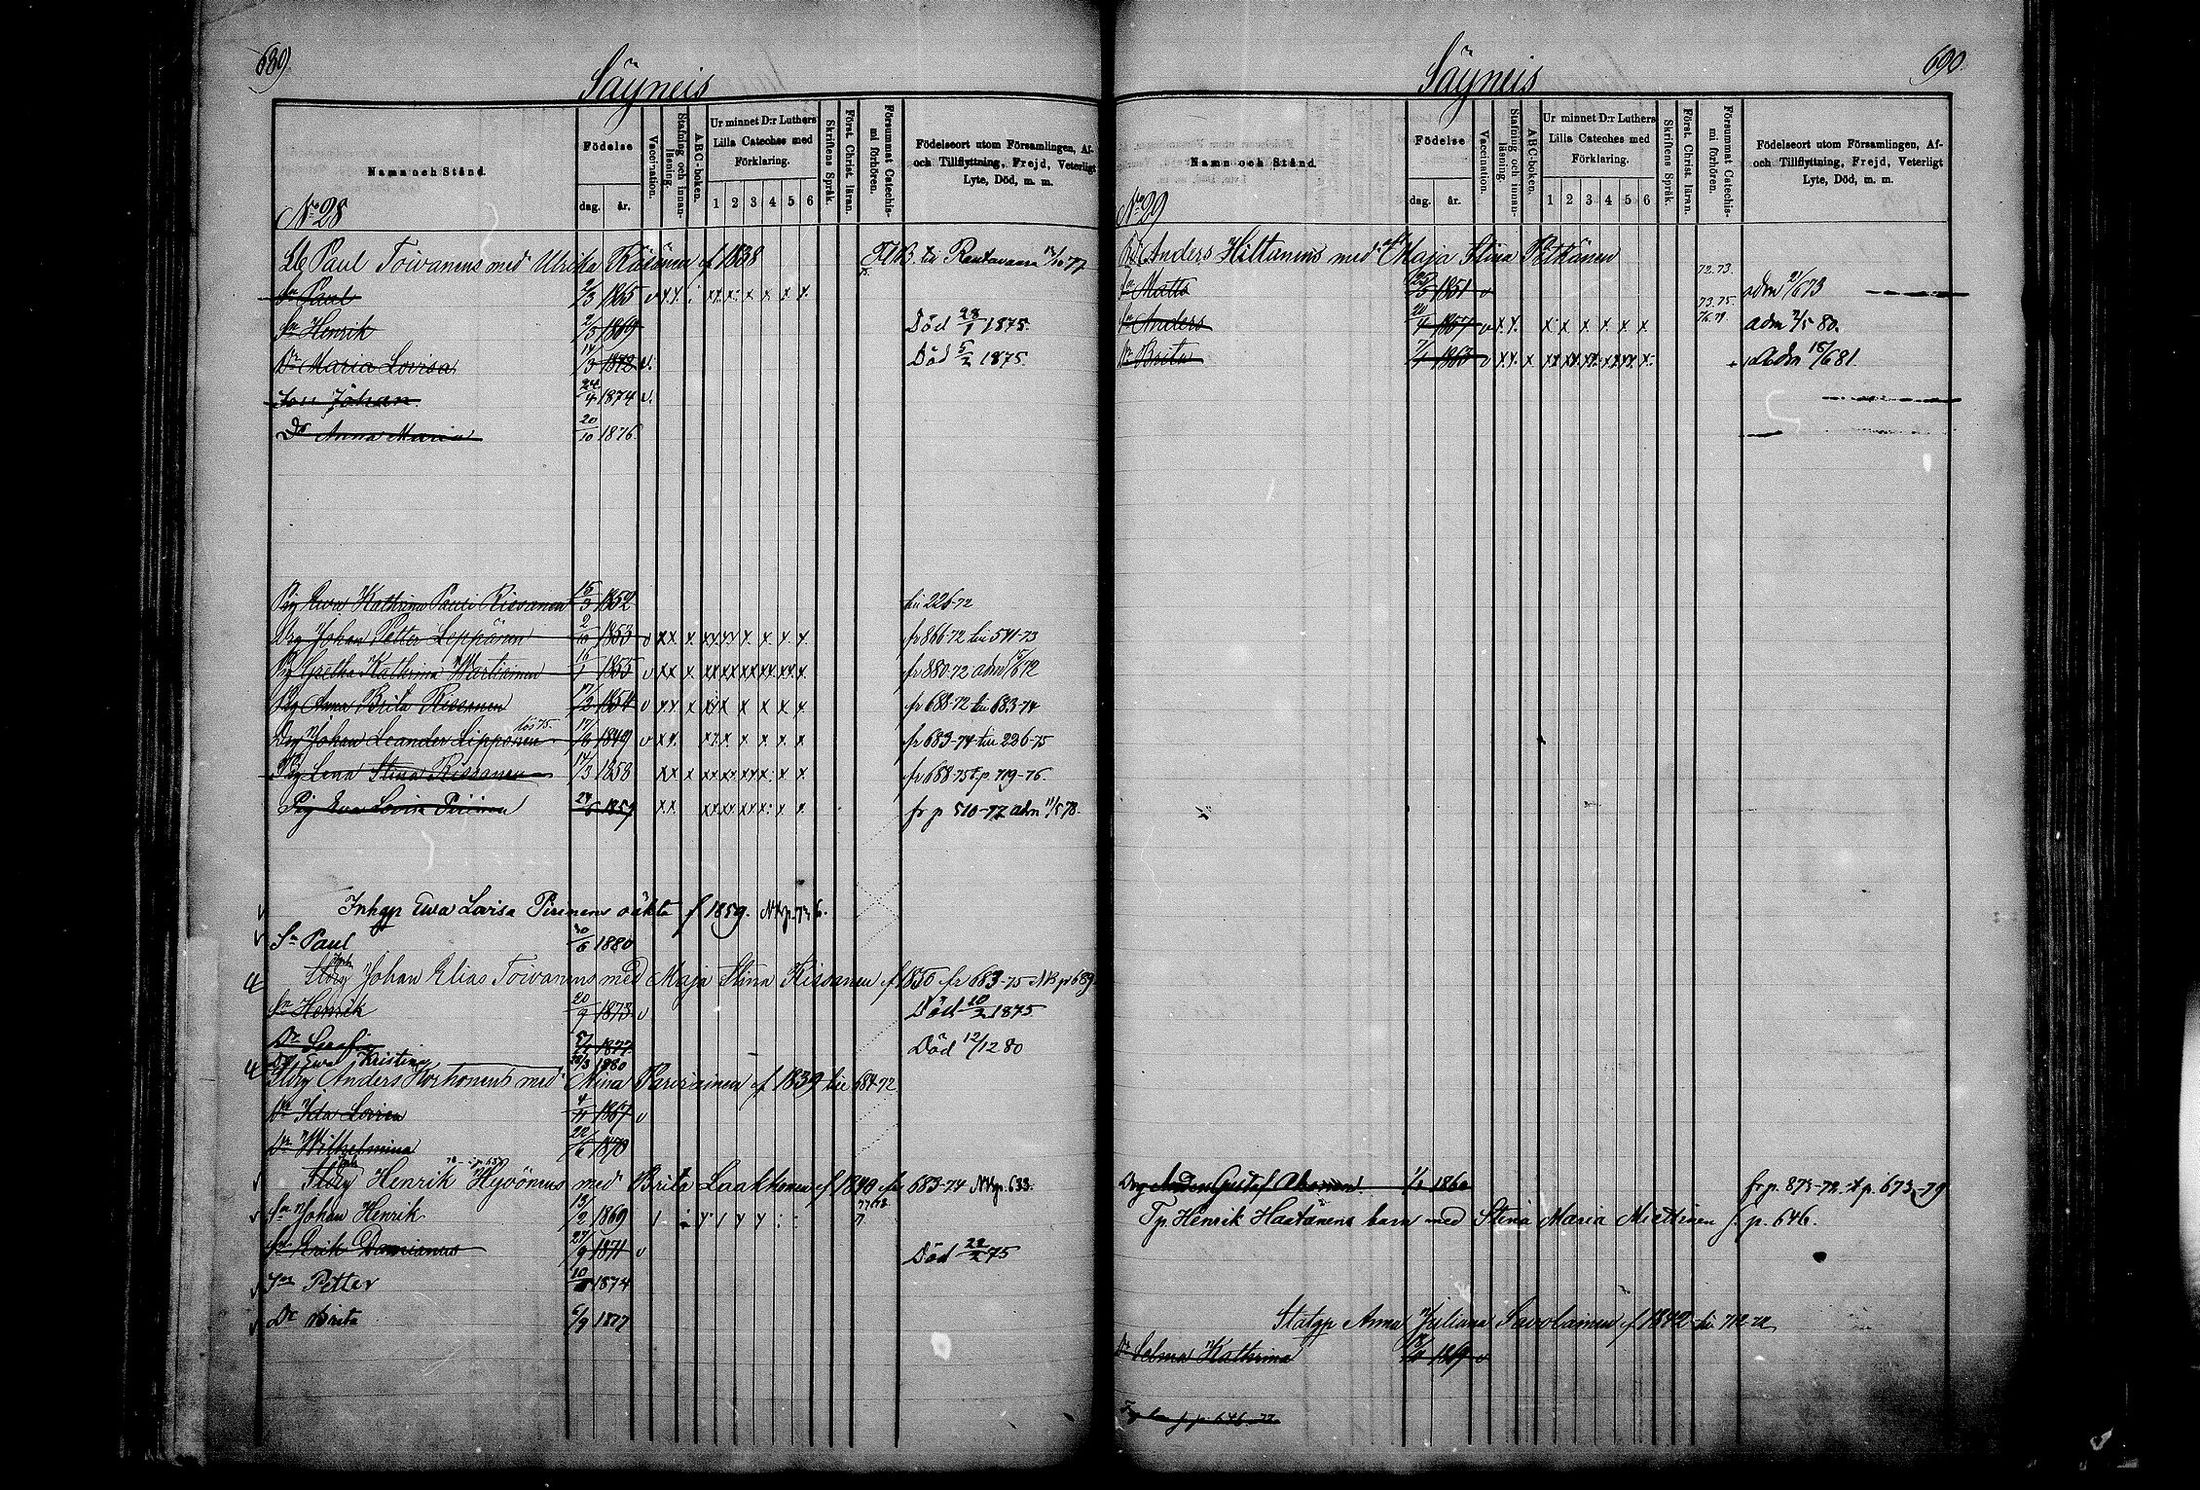 689
Säyneis
Namn och Stånd.
Födelse
dag. år.
Vaccination.
Stafning och innanläsning.
ABC-boken.
Ur minnet D:r Luthers Lilla Cateches med Förklaring.
1 2 3 4 5 6
Skriftens Språk.
Först. Christ. läran.
Försummat Catechismi förhören.
Födelseort utom Församlingen, Af- och Tillflyttning, Frejd, Veterligt Lyte, Död, m. m.
No 28
Paul Toivanens med Ulrika Räsänen f 1838 till Rautavaara 77
Sn Paul 2/3 1865
Sn Henrik 2/5 1869 Död 28/1 1875.
Dr Maria Lovisa 14/3 1872 Död 5/2 1875.
Son Johan 24/4 1874
Dr Anna Maria 20/10 1876
Pig Ewa Kathrina Paul Rissanen 1852 till 226-72
Drg Johan Petter Leppänen 2/10 1853 fr 866-72 till 571-73
Pig Gretha Kathrina Martikainen 1855 fr 880-72
Pig Anna Brita Rissanen 17/2 1854 fr 688-72 till 683-74
Drg Johan Leander Lipponen 1849 fr 683-74 till 226-75
Pig Lena Stina Rissanen 17/3 1858 fr 688-75 t.p 719-76.
Pig Ewa Lovisa Piirinen 1859 fr p 510-77 adm 11/5 78.
Inhgp Ewa Lovisa Pirinens oäkta f 1859.
Sn Paul 1880
Johan Elias Toivanens med Maja Stina Rissanen f 1850 fr 683-75 NB p 689
Sn Henrik 20/9 1873 Död 10/2 1875
Dr Serafia 1877 Död 12/12 80
Dr Ewa Kristina 1880
Anders Korhonens med Mina Parviainen f 1839 till 684-72
Dr Ida Lovisa 4/11 1867
Dr Wilhelmina 22/6 1870
Henrik Hyvönens med Brita Laakkonen f 1840 fr 683-74 NB p. 633.
Sn Johan Henrik 13/2 1869
Sn Erik Damianus 27/9 1871 Död 22/2 75
Sn Petter 1874
Dr Brita 6/9 1877
690
Säyneis
Namn och Stånd.
Födelse
dag. år.
Vaccination.
Stafning och innanläsning.
ABC-boken.
Ur minnet D:r Luthers Lilla Cateches med Förklaring.
1 2 3 4 5 6
Skriftens Språk.
Först. Christ. läran.
Försummat Catechismi förhören.
Födelseort utom Församlingen, Af- och Tillflyttning, Frejd, Veterligt Lyte, Död, m. m.
No 29
Anders Hiltunens med Maja Stina Pitkänen
Sn Matts 1851 72.73. adm 21/6 73
Sn Anders 1857 73.75. 76.79. adm 2/5 80.
Dr Brita 7/1 1863 Adm 18/6 81.
Drg Anders Gustaf Ahonen 1860 fr p. 873-72. t p. 673-79
Tp. Henrik Haatanens barn med Stina Maria Miettinen f. p. 646.
Statgp Anna Juliana Savolainen f 1842 till 712-72
Dr Selma Kathrina 1869
p 646-77